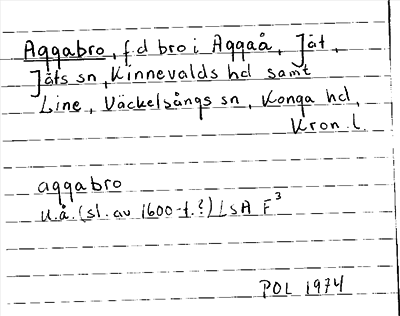 Aggabro, f.d bro i Aggaå, Jät,
Jäts sn, Kinnevalds hd samt
Line, Väckelsångs sn, Konga hd,
Kron. l.
aggabro
u.å. (sl. av 1600-t.?) LSA F³
POL 1974